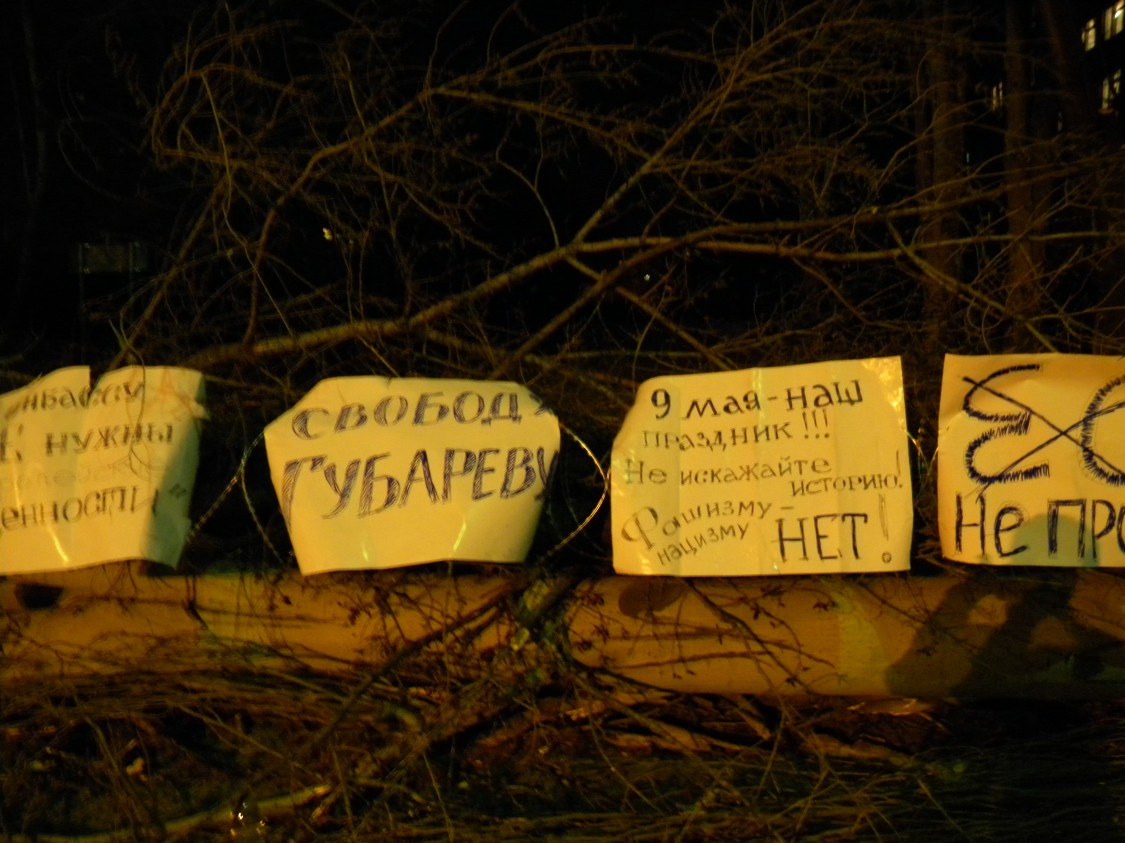 нбассу
Е нужны
енности"
СВОБОДУ
ГУБАРЕВУ
9 мая - наш
праздник!!!
Не искажайте
историю!
Фашизму -
нацизму НЕТ!
ЕС
Не ПРО